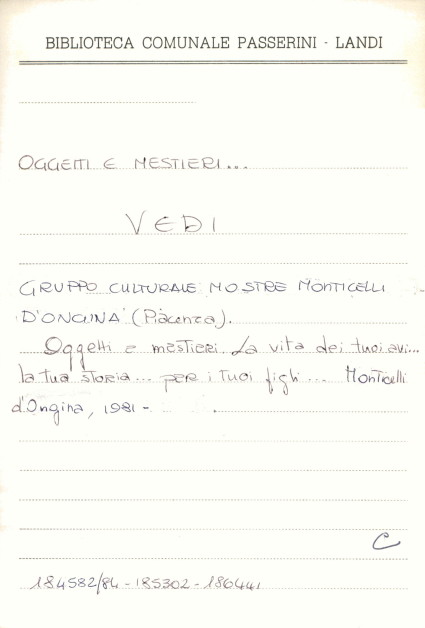 BIBLIOTECA COMUNALE PASSERINI - LANDI
OGGETTI E MESTIERI...
VEDI
GRUPPO CULTURALE MOSTRE MONTICELLI
D'ONGINA (Piacenza).
Oggetti e mestieri. La vita dei tuoi avi...
la tua storia... per i tuoi figli... Monticelli
d'Ongina, 1981 - .
C
184582/84 - 185302 - 186441